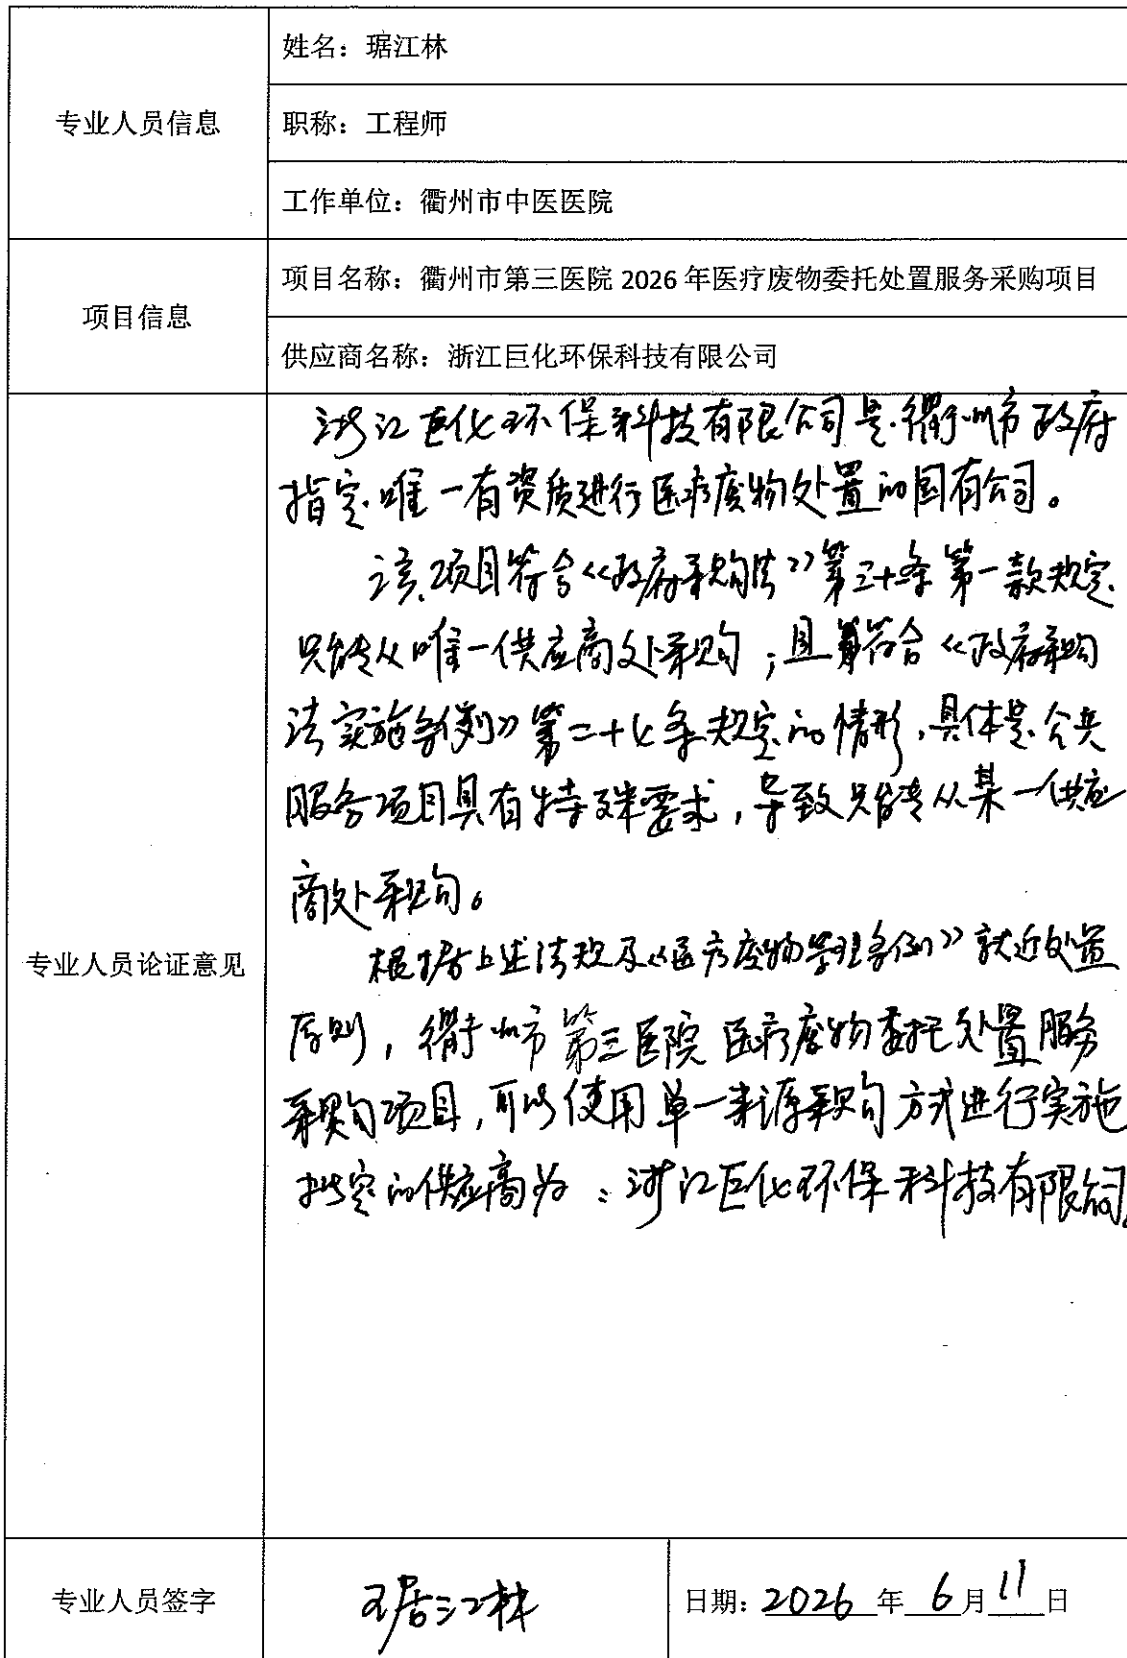 专业人员信息
姓名：琚江林
职称：工程师
工作单位：衢州市中医医院
项目信息
项目名称：衢州市第三医院 2026 年医疗废物委托处置服务采购项目
供应商名称：浙江巨化环保科技有限公司
专业人员论证意见
浙江巨化环保科技有限公司是衢州市政府
指定唯一有资质进行医疗废物处置的国有公司。
该项目符合《政府采购法》第三十条第一款规定
只能从唯一供应商处采购；且符合《政府采购
法实施条例》第二十七条规定的情形，具体是公共
服务项目具有特殊要求，导致只能从某一供应
商处采购。
根据上述法规及《医疗废物管理条例》就近处置
原则，衢州市第三医院医疗废物委托处置服务
采购项目，可以使用单一来源采购方式进行实施
拟定的供应商为：浙江巨化环保科技有限公司。
专业人员签字
琚江林
日期：2026 年 6 月 11 日